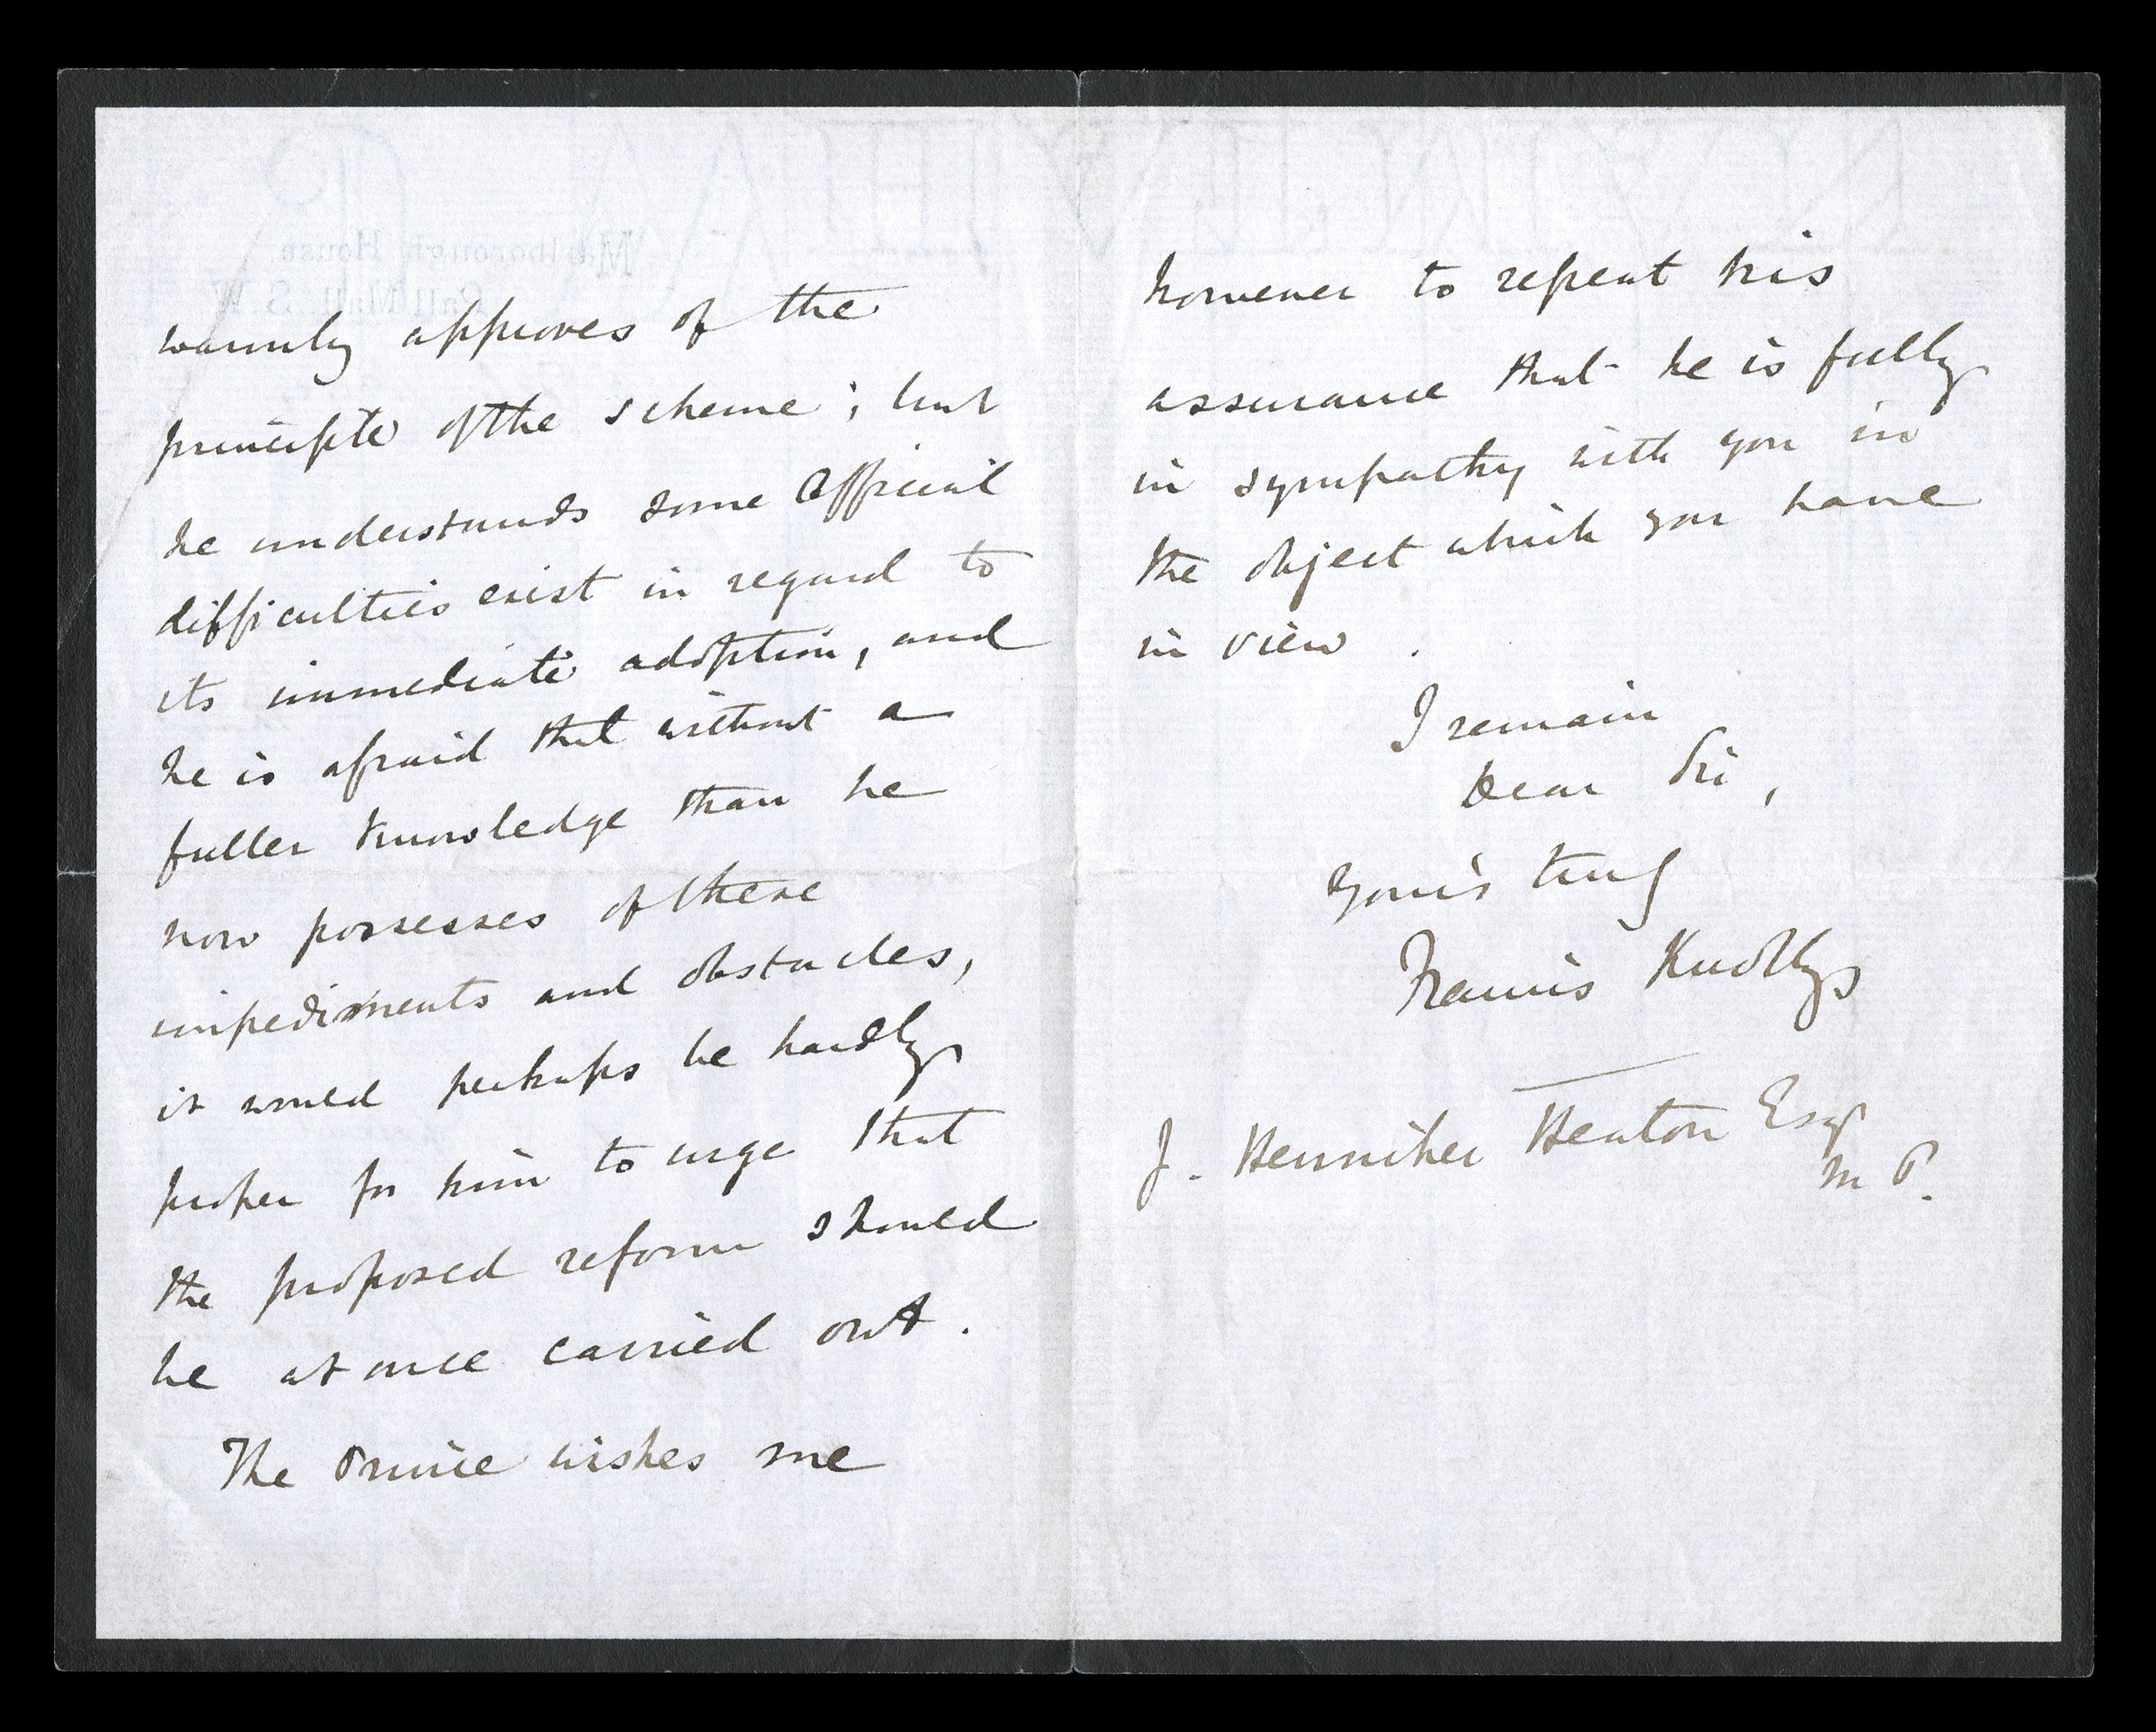 warmly approves of the
principle of the scheme; but
he understands some Official
difficulties exist in regard to
its immediate adoption, and
he is afraid that without a
fuller knowledge than he
now possesses of these
impediments and obstacles,
it would perhaps be hardly
proper for him to urge that
the proposed reform should
be at once carried out.
The Prince wishes me
however to repeat his
assurance that he is fully
in sympathy with you in
the object which you have
in view.
I remain
Dear Sir,
Yours truly
Francis Knollys
J. Henniker Heaton Esqr
M P.
Marlborough House.
Pall Mall. S.W.